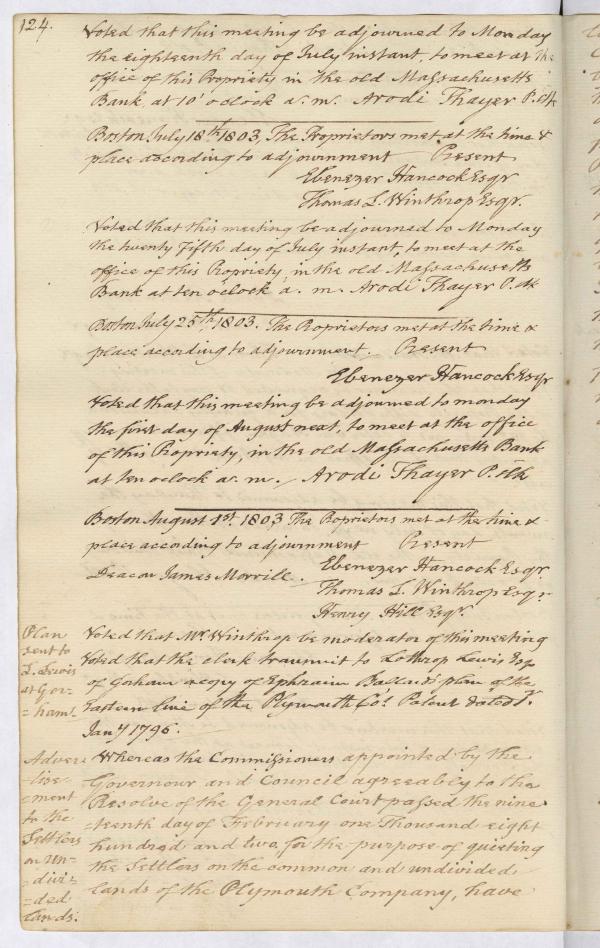 124.
Voted that this meeting be adjourned to Monday
the eighteenth day of July instant, to meet at the
office of this Propriety in the old Massachusetts
Bank, at 10 o'clock a. m. Arodi Thayer P. Clk
Boston July 18th 1803, The Proprietors met at the time &
place according to adjournment Present
Ebenezer Hancock Esqr
Thomas L. Winthrop Esqr.
Voted that this meeting be adjourned to Monday
the twenty fifth day of July instant, to meet at the
office of this Propriety, in the old Massachusetts
Bank at ten o'clock a. m. Arodi Thayer P. Clk
Boston July 25th 1803. The Proprietors met at the time &
place according to adjournment. Present
Ebenezer Hancock Esqr
Voted that this meeting be adjourned to monday
the first day of August next, to meet at the office
of this Propriety, in the old Massachusetts Bank
at ten oclock a. m. Arodi Thayer P. Clk
Boston August 1st. 1803, The Proprietors met at the time &
place according to adjournment Present
Ebenezer Hancock Esqr.
Deacon James Morrill.
Thomas L. Winthrop Esqr.
Henry Hill Esqr.
Plan
sent to
L. Lewis
at Gor-
=ham.
Voted that Mr. Winthrop be moderator of this meeting
Voted that the clerk transmit to Lothrop Lewis Esq
of Gorham a copy of Ephraim Ballard's plan of the
Eastern line of the Plymouth Co's. Patent dated
Jany 1795.
Adver-
-tise-
-ment
to the
Settlers
on un-
-divi-
-ded
lands.
Whereas the Commissioners appointed by the
Governour and Council agreeably to the
Resolve of the General Court passed the nine-
-teenth day of February one Thousand eight
hundred and two, for the purpose of quieting
the Settlers on the common and undivided
lands of the Plymouth Company, have